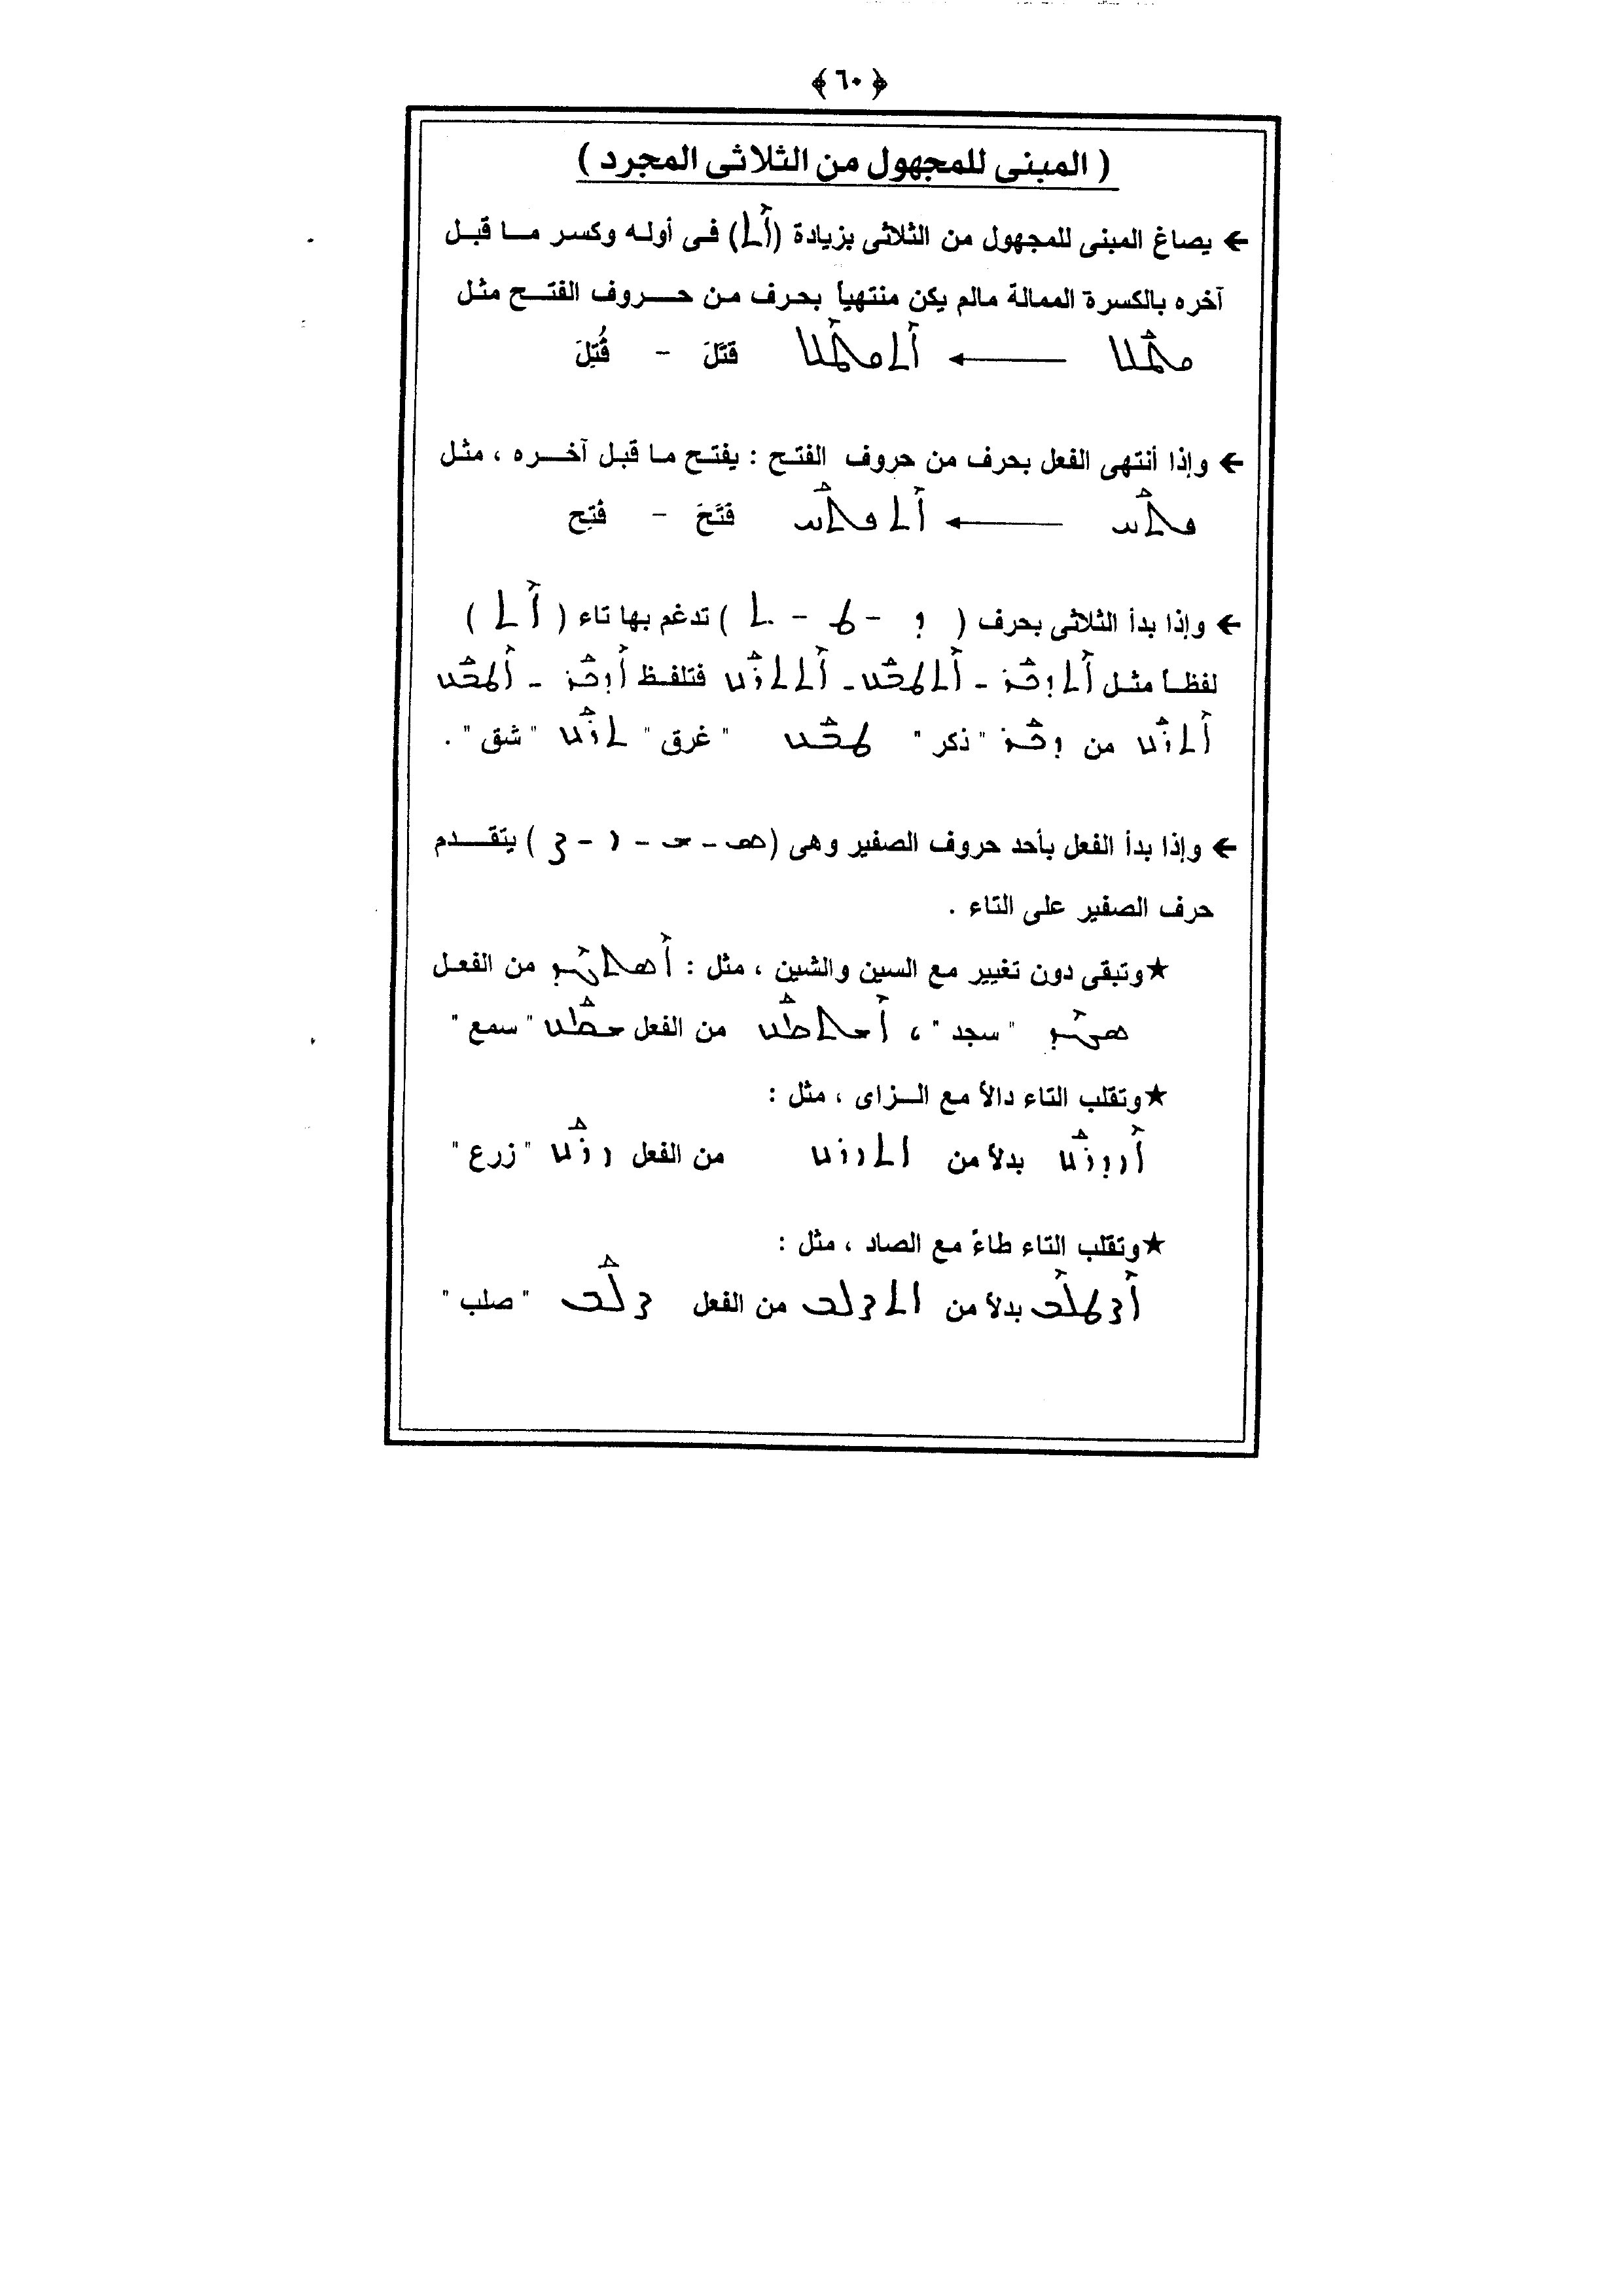 ﴿ ٦٠ ﴾
( المبنى للمجهول من الثلاثى المجرد )
← يصاغ المبنى للمجهول من الثلاثى بزيادة (ܐܶܬ) فى أوله وكسر ما قبل
آخره بالكسرة الممالة مالم يكن منتهياً بحرف من حروف الفتح مثل
ܩܛܰܠ ← ܐܶܬܩܛܶܠ قتَلَ - قُتِلَ
← وإذا أنتهى الفعل بحرف من حروف الفتح : يفتح ما قبل آخره ، مثل
ܦܬܰܚ ← ܐܶܬܦܬܰܚ فَتَحَ - فُتِح
← وإذا بدأ الثلاثى بحرف ( ܕ - ܛ - ܬ ) تدغم بها تاء ( ܐܶܬ )
لفظا مثل ܐܶܬܕܟܰܪ - ܐܶܬܛܒܰܥ - ܐܶܬܬܪܰܥ فتلفظ ܐܶܕܟܰܪ - ܐܶܛܒܰܥ
ܐܶܬܪܰܥ من ܕܟܰܪ "ذكر" ܛܒܰܥ "غرق" ܬܪܰܥ "شق" .
← وإذا بدأ الفعل بأحد حروف الصفير وهى (ܣ - ܫ - ܙ - ܨ) يتقدم
حرف الصفير على التاء .
★وتبقى دون تغيير مع السين والشين ، مثل : ܐܶܣܬܓܶܕ من الفعل
ܣܓܶܕ "سجد" ، ܐܶܫܬܡܰܥ من الفعل ܫܡܰܥ "سمع"
★وتقلب التاء دالاً مع الزاى ، مثل :
ܐܶܙܕܪܰܥ بدلاً من ܐܬܙܪܥ من الفعل ܙܪܰܥ "زرع"
★وتقلب التاء طاءً مع الصاد ، مثل :
ܐܶܨܛܠܶܒ بدلاً من ܐܬܨܠܒ من الفعل ܨܠܰܒ "صلب"